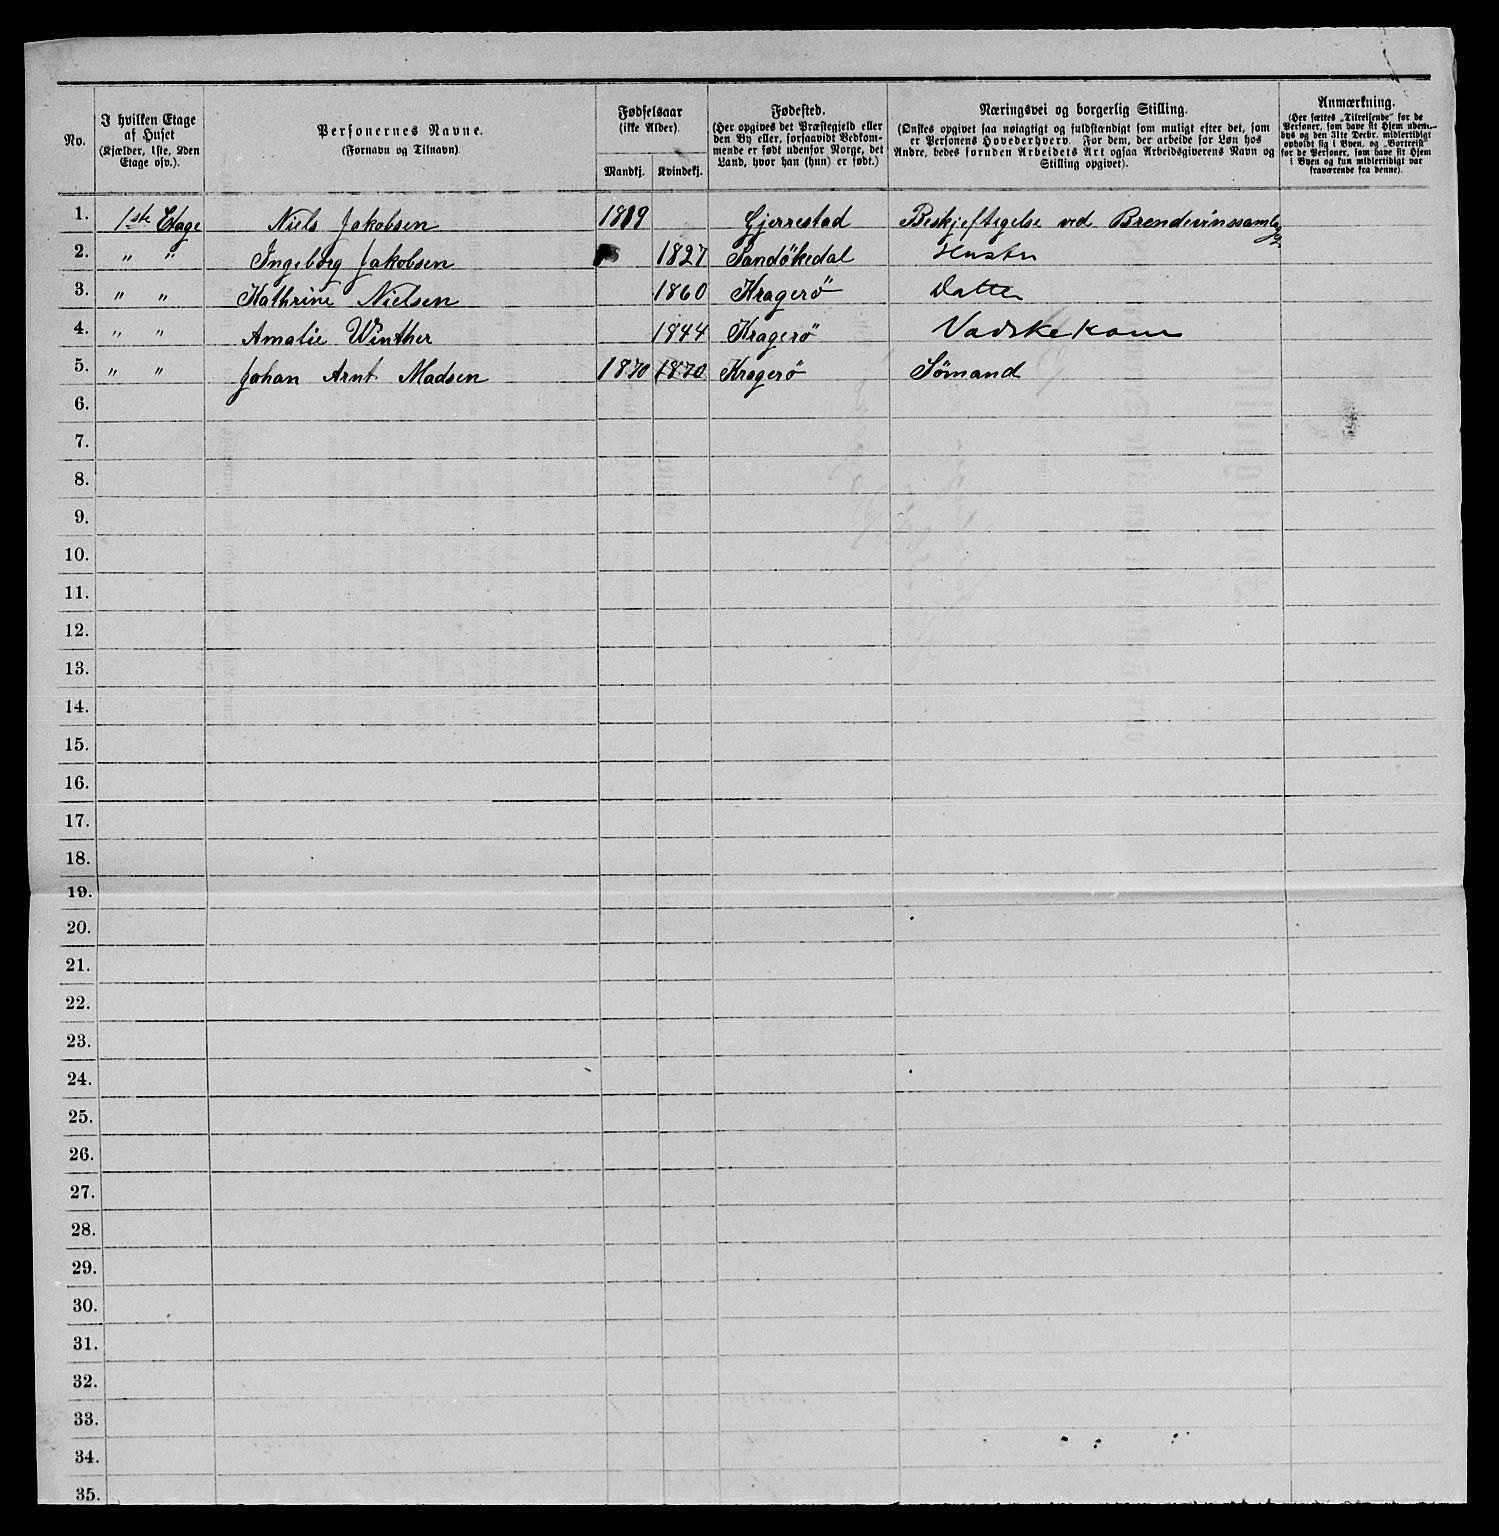 No.
I hvilken Etage
af Huset
(Kjælder, 1ste, 2den
Etage osv.).
Personernes Navne.
(Fornavn og Tilnavn)
Fødselsaar
(ikke Alder).
Mandkj. Kvindekj.
Fødested.
(Her opgives det Præstegjeld eller
den By eller, forsaavidt Vedkom-
mende er født udenfor Norge, det
Land, hvor han (hun) er født.)
Næringsvei og borgerlig Stilling.
(Ønskes opgivet saa nøiagtigt og fuldstændigt som muligt efter det, som
er Personens Hovederhverv. For dem, der arbeide for Løn hos
Andre, bedes foruden Arbeidets Art ogsaa Arbeidsgiverens Navn og
Stilling opgivet).
Anmærkning.
(Her sættes „Tilreisende" for de
Personer, som have sit Hjem uden-
bys og den 31te Decbr. midlertidigt
opholdt sig i Byen, og „Bortreist"
for de Personer, som have sit Hjem
i Byen og kun midlertidigt var
fraværende fra denne).
1. 1ste Etage Niels Jakobsen 1819 Gjerrestad Beskjeftigelse ved Brendevinssamlag
2. " " Ingeborg Jakobsen 1827 Sandökedal Hustru
3. " " Kathrine Nielsen 1860 Kragerö Datter
4. " " Amalie Winther 1844 Kragerö Vadskekone
5. " " Johan Arnt Madsen 1870 1870 Kragerö Sömand
6.
7.
8.
9.
10.
11.
12.
13.
14.
15.
16.
17.
18.
19.
20.
21.
22.
23.
24.
25.
26.
27.
28.
29.
30.
31.
32.
33.
34.
35.